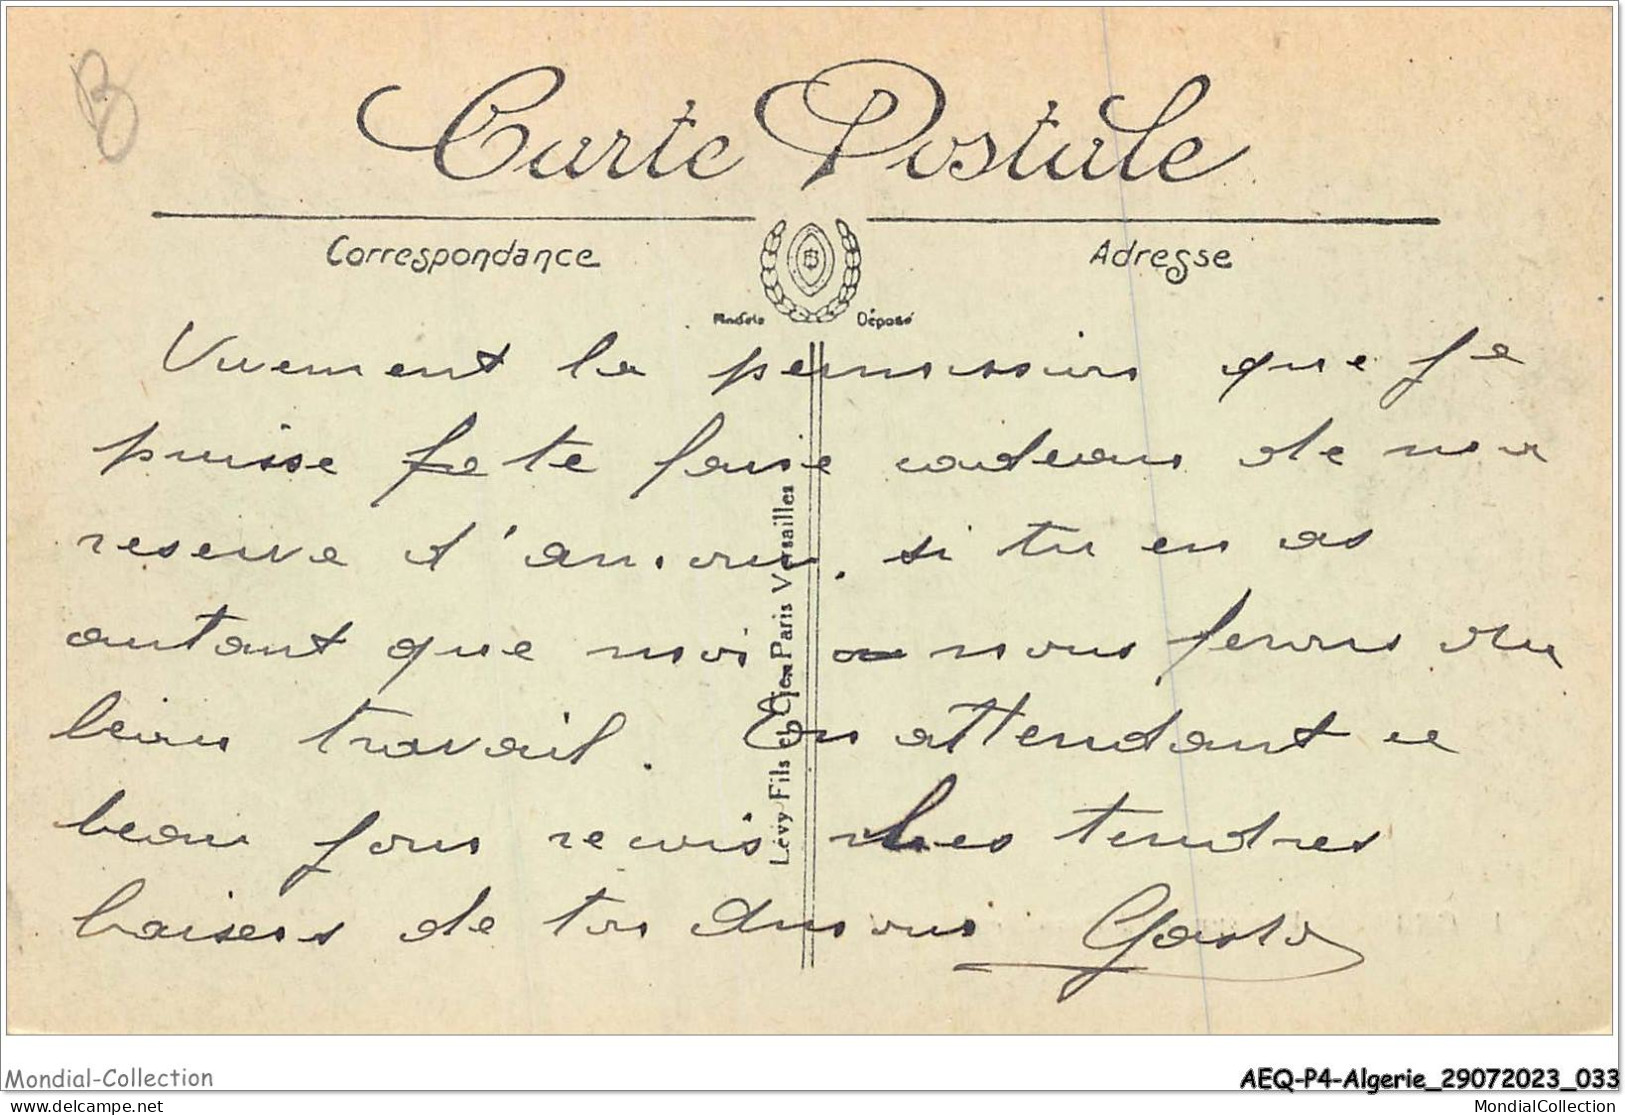 Carte Postale
Correspondance
Adresse
Modèle Déposé
Vivement la permission que je
puisse je te faire cadeau de ma
reserve d'amour. si tu en as
autant que moi nous ferons du
beau travail. En attendant ce
beau jour recois mes tendres
baisers de ton Amour Gaston
Lévy Fils et Cie, Paris Versailles
Mondial-Collection
AEQ-P4-Algerie_29072023_033
delcampe.net
MondialCollection